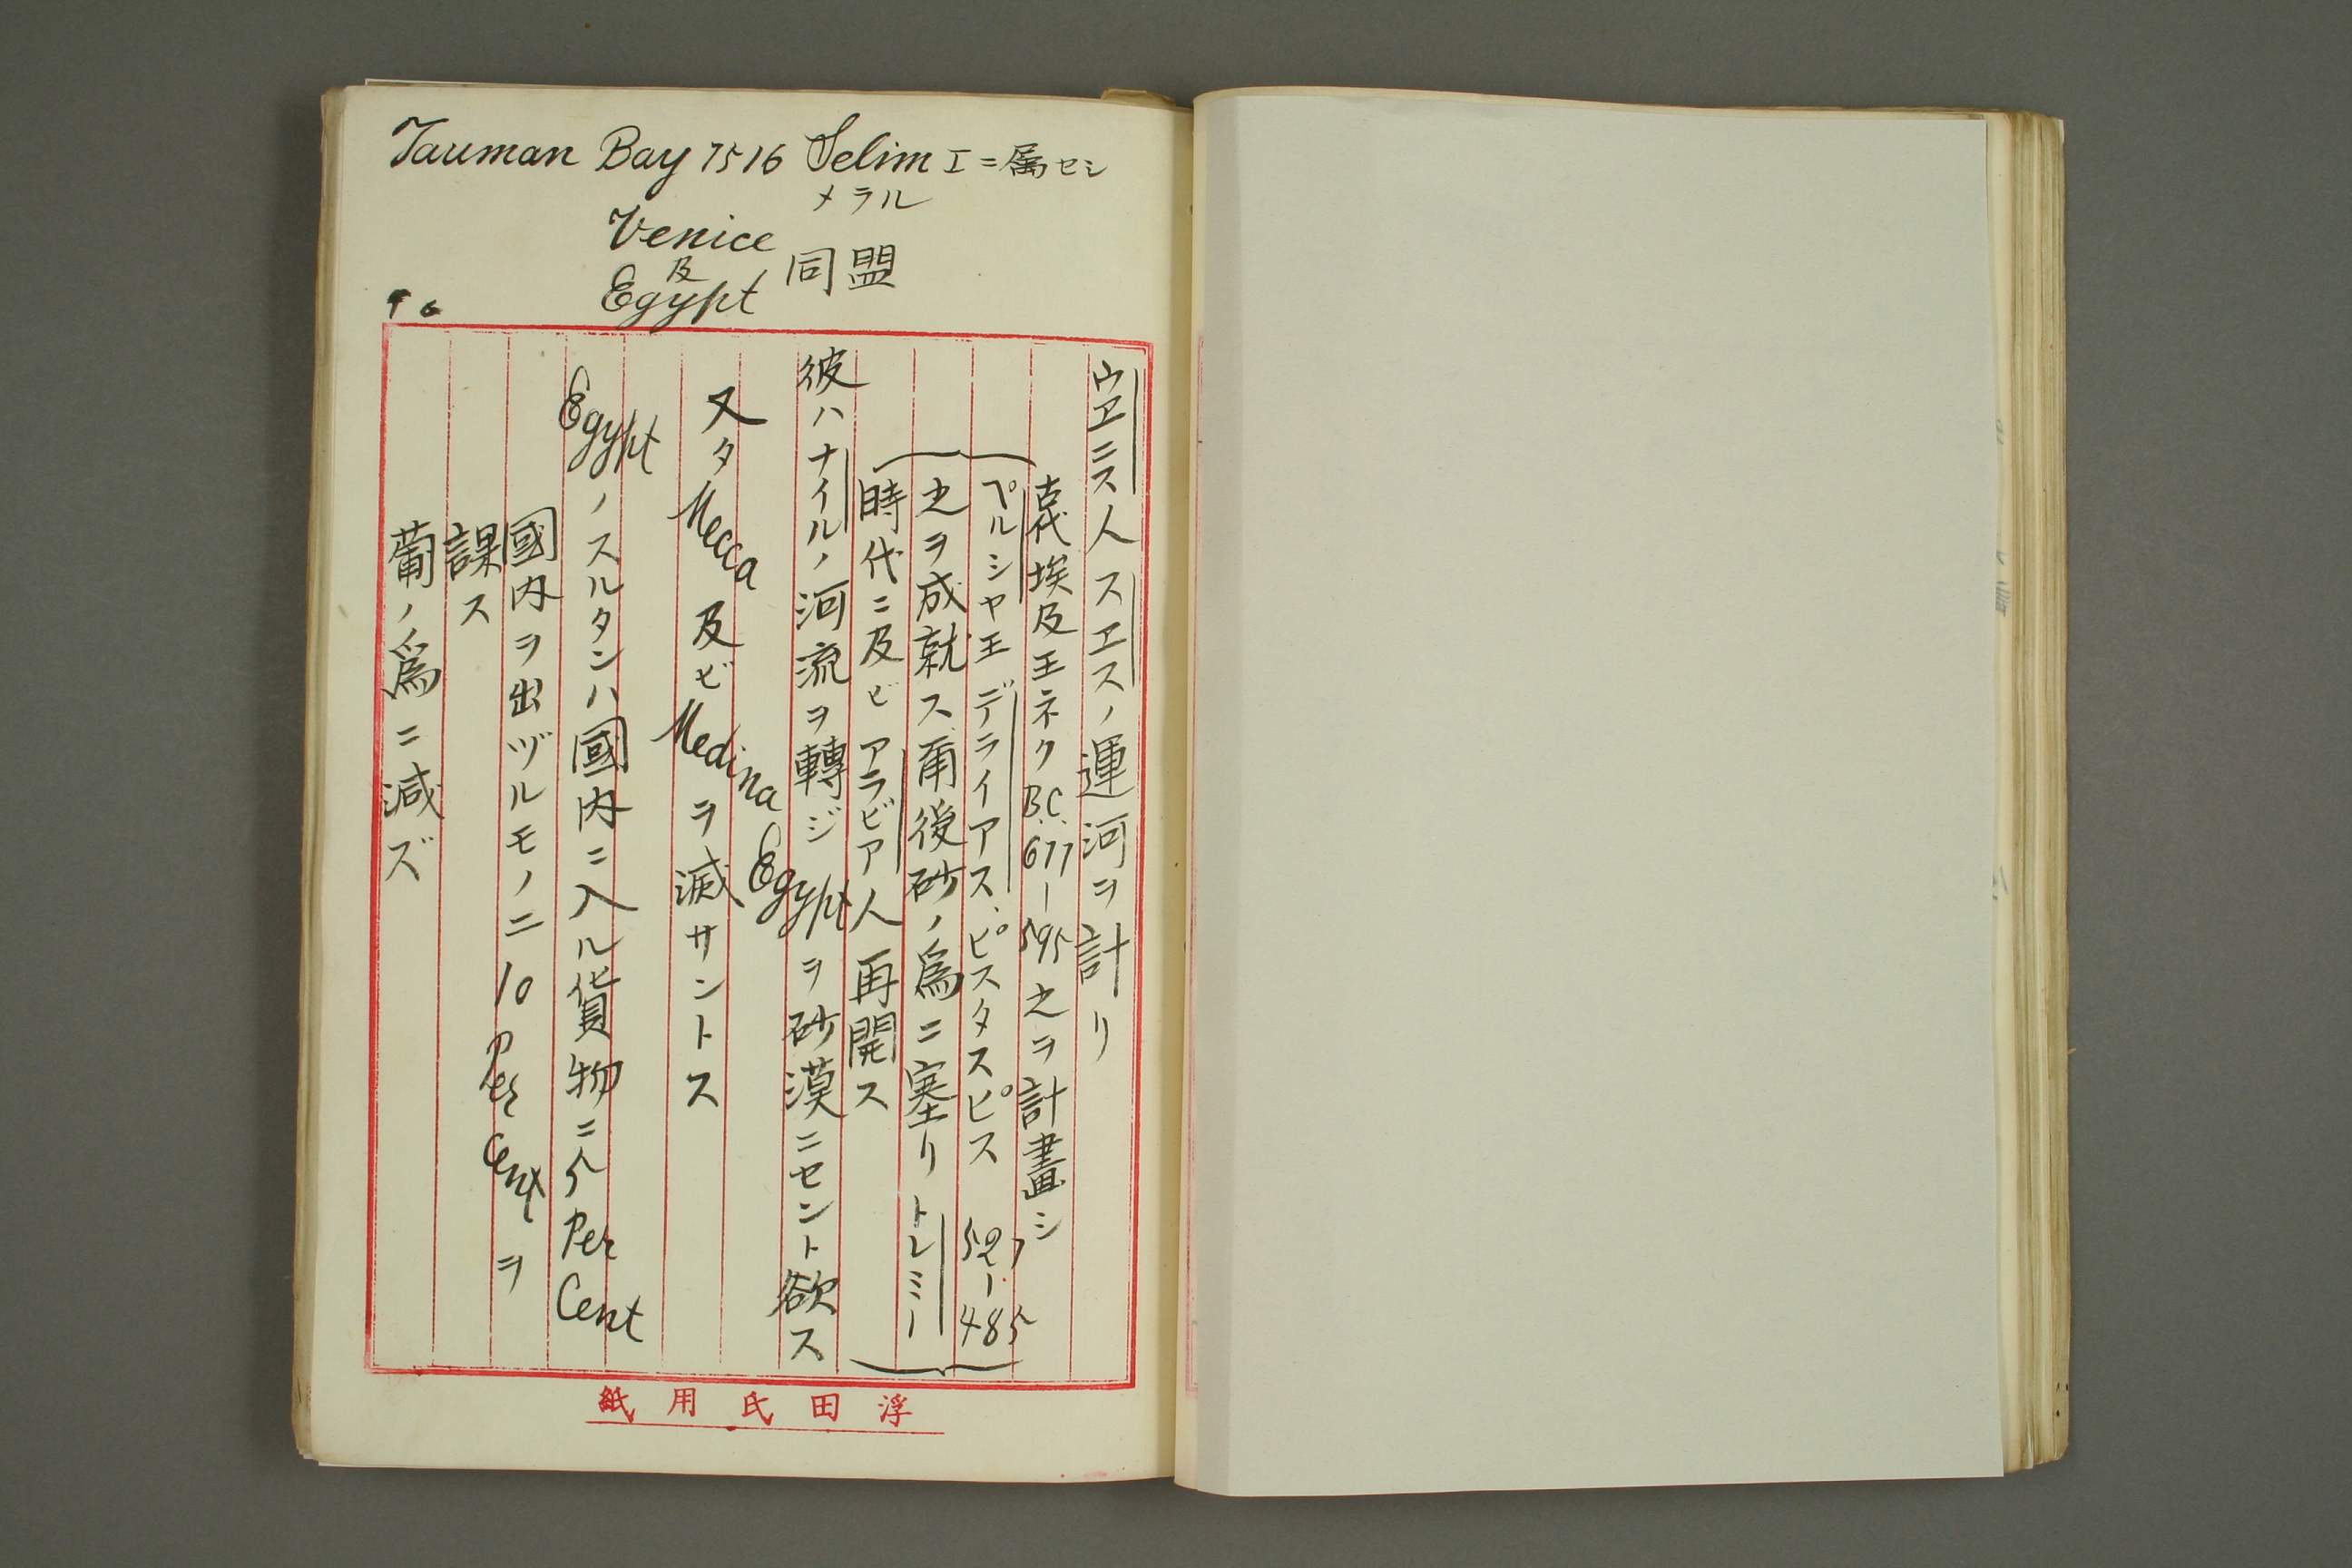 Tauman Bay 1516 Selim I ニ属セシ
メラル
Venice
及
Egypt
同盟
96
ウヱニス人スヱスノ運河ヲ計リ
古代埃及王ネクB.C.611-595之ヲ計畫シ
ペルシヤ王デライアス、ピスタスピス 527-485
之ヲ成就ス爾後砂ノ為ニ塞リトレミー
時代ニ及ビアラビア人再開ス
彼ハナイルノ河流ヲ轉ジEgyptヲ砂漠ニセント欲ス
又タMecca及ビMedinaヲ滅サントス
Egyptノスルタンハ國内ニ入ル貨物ニ5 Per Cent
國内ヲ出ヅルモノニ10 Per Centヲ
課ス
葡ノ為ニ減ズ
浮田氏用紙